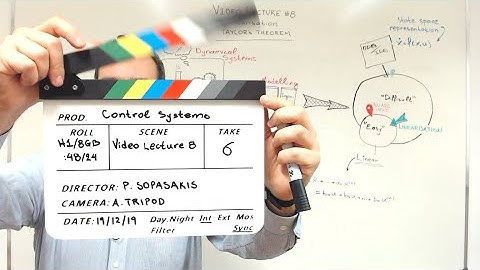 VIDEO LECTURE #8
TAYLOR'S THEOREM
Dynamical
Systems
Modelling
ODEs
State space
representation
ẋ=f(x,u)
"Difficult"
"Easy"
LINEARISATION
Linear
PROD. Control Systems
ROLL
H1/8GB
:48/24
SCENE
Video Lecture 8
TAKE
6
DIRECTOR: P. SOPASAKIS
CAMERA: A. TRIPOD
DATE: 19/12/19
Day Night Int Ext Mos
Filter Sync